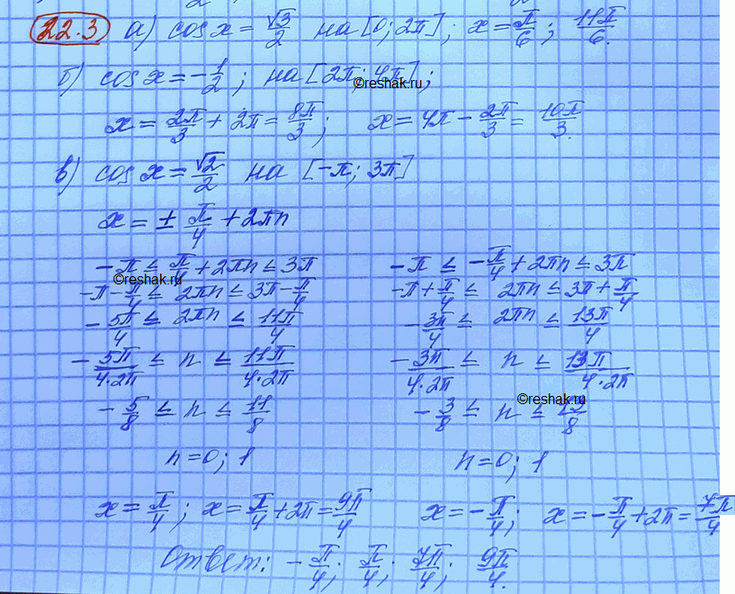 22.3 а) cos x = √3/2 на [0; 2π]; x = π/6; 11π/6.
б) cos x = -1/2; на [2π; 4π];
©reshak.ru
x = 2π/3 + 2π = 8π/3; x = 4π - 2π/3 = 10π/3.
в) cos x = √2/2 на [-π; 3π]
x = ± π/4 + 2πn
-π ≤ π/4 + 2πn ≤ 3π -π ≤ -π/4 + 2πn ≤ 3π
©reshak.ru
-π - π/4 ≤ 2πn ≤ 3π - π/4 -π + π/4 ≤ 2πn ≤ 3π + π/4
-5π/4 ≤ 2πn ≤ 11π/4 -3π/4 ≤ 2πn ≤ 13π/4
-5π/4·2π ≤ n ≤ 11π/4·2π -3π/4·2π ≤ n ≤ 13π/4·2π
©reshak.ru
-5/8 ≤ n ≤ 11/8 -3/8 ≤ n ≤ 13/8
n = 0; 1 n = 0; 1
x = π/4; x = π/4 + 2π = 9π/4 x = -π/4; x = -π/4 + 2π = 7π/4
Ответ: -π/4; π/4; 7π/4; 9π/4.